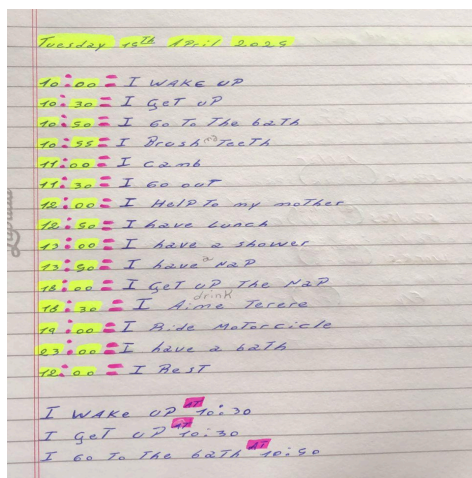 Tuesday 15th April 2025
10:00 = I WAKE UP
10:30 = I GeT UP
10:50 = I Go To The baTh
10:55 = I Brush a TeeTh
11:00 = I Comb
11:30 = I Go out
12:00 = I HelP To my moTher
12:50 = I have Lunch
13:00 = I have a shower
13:50 = I have a NaP
18:00 = I GeT UP The NaP
drink
18:30 = I Aime Terere
19:00 = I Ride MoTorcicle
23:00 = I have a baTh
12:00 = I ResT
I WAKE UP AT 10:30
I GeT UP AT 10:30
I Go To The baTh AT 10:50